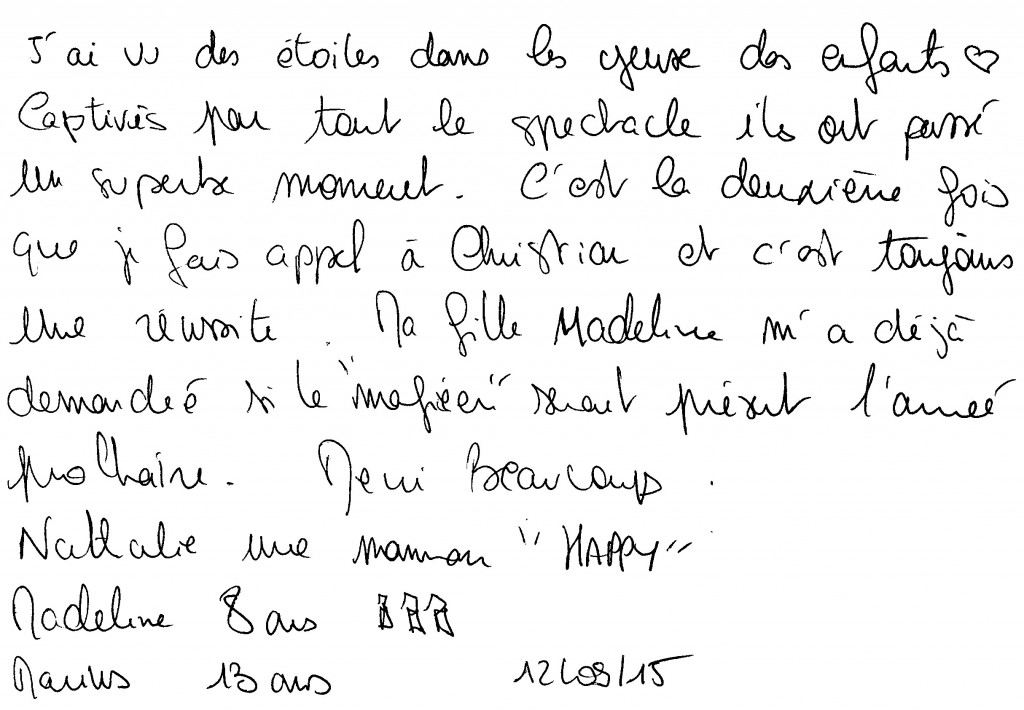 J'ai vu des étoiles dans les yeuse des enfants ♡
Captivés par tout le spectacle ils ont passé
un superbe moment. C'est la deuxième fois
que je fais appel à Christian et c'est toujours
une réussite. Ma fille Madeline m'a déjà
demandeé si le "magicien" serait présent l'anneé
prochaine. Merci Beaucoup.
Nathalie une maman "HAPPY"
Madeline 8 ans
Marius 13 ans 12/09/15